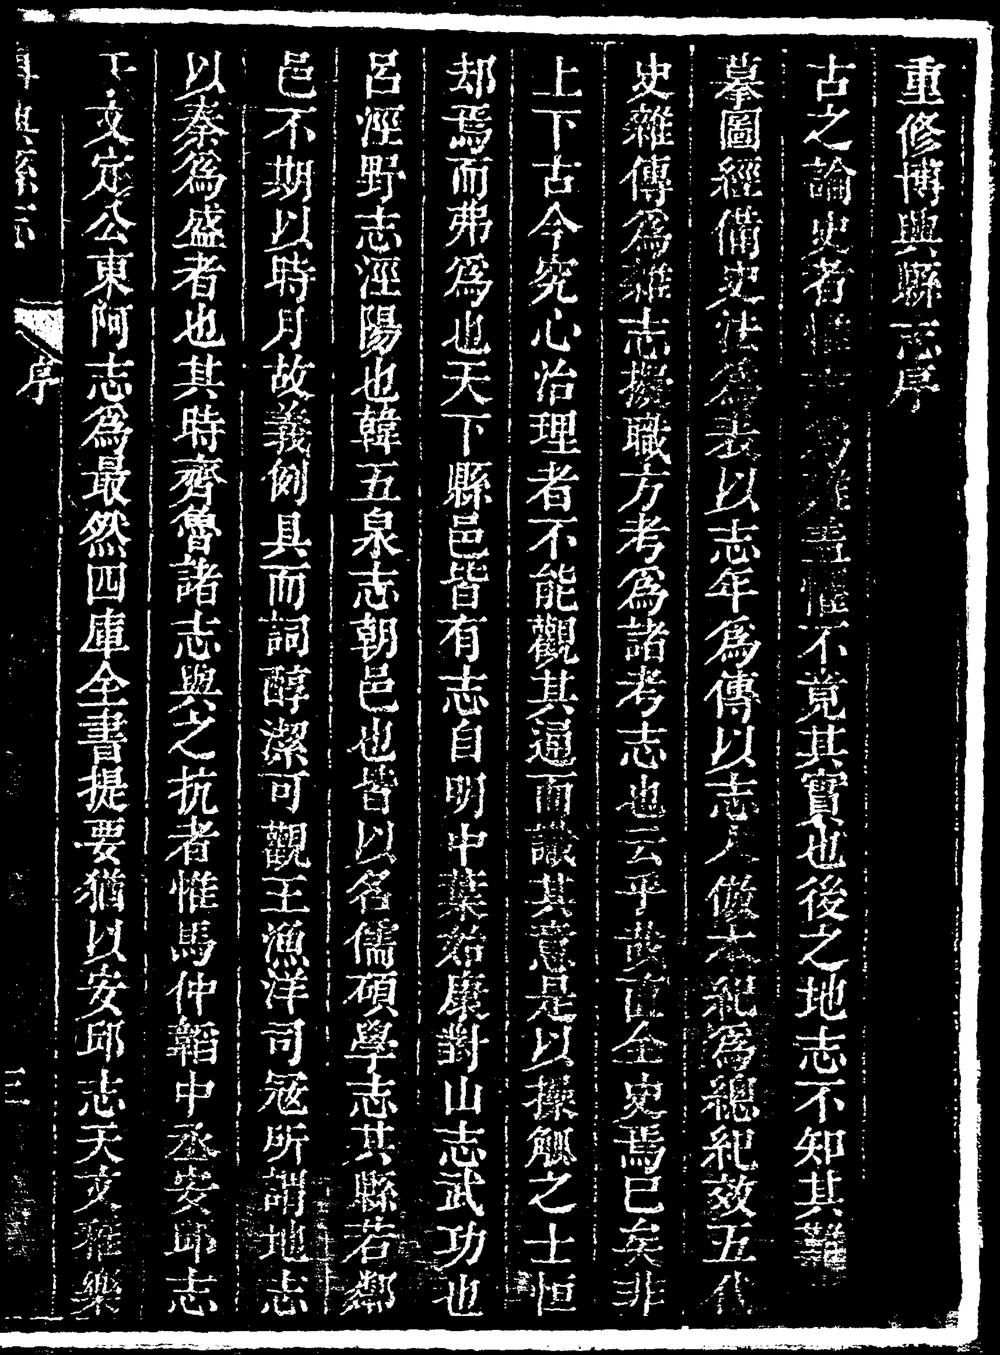 重修博興縣志序
古之論史者惟志爲難蓋懼不竟其實也後之地志不知其難
摹圖經備史法爲表以志年爲傳以志人倣本紀爲總紀效五代
史雜傳爲雜志擬職方考爲諸考志也云乎哉直全史焉已矣非
上下古今究心治理者不能觀其通而識其意是以操觚之士恒
却焉而弗爲也天下縣邑皆有志自明中葉始康對山志武功也
呂涇野志涇陽也韓五泉志朝邑也皆以名儒碩學志其縣若鄰
邑不期以時月故義例具而詞醇潔可觀王漁洋司寇所謂地志
以秦爲盛者也其時齊魯諸志與之抗者惟馬仲韜中丞安邱志
于文定公東阿志爲最然四庫全書提要猶以安邱志天文雜樂
博興縣志
序
三